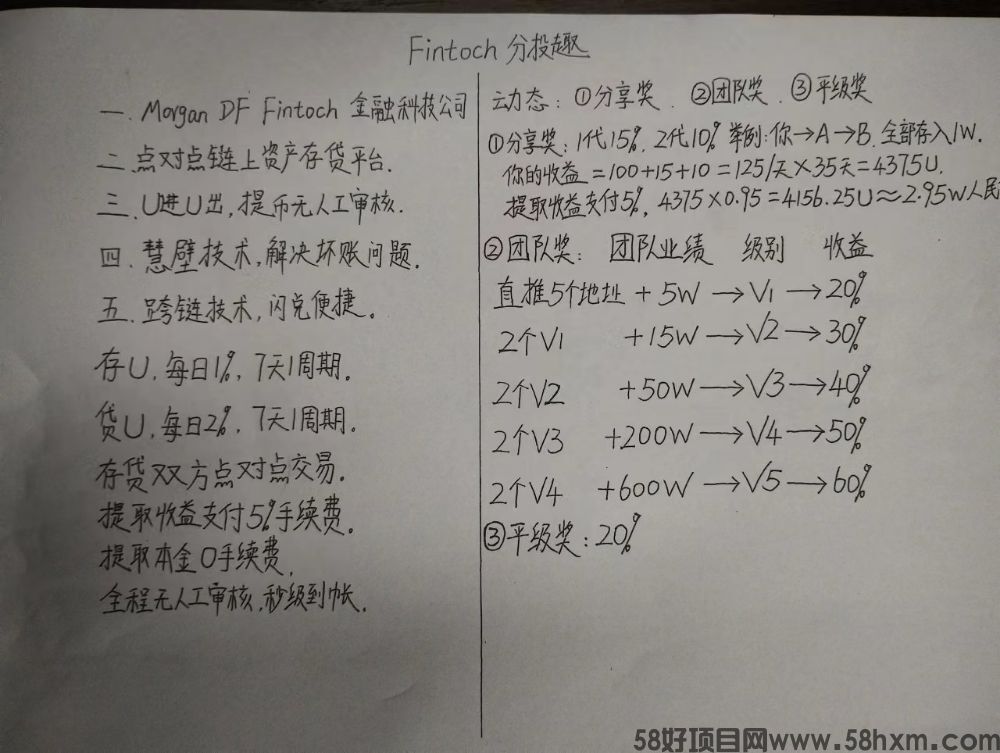 Fintoch 分投趣
一. Morgan DF Fintoch 金融科技公司
二. 点对点链上资产存贷平台.
三. U进U出, 提币无人工审核.
四. 慧壁技术, 解决坏账问题.
五. 跨链技术, 闪兑便捷.
存U, 每日1%, 7天1周期.
贷U, 每日2%, 7天1周期.
存贷双方点对点交易.
提取收益支付5%手续费.
提取本金0手续费,
全程无人工审核, 秒级到帐.
动态: ①分享奖. ②团队奖. ③平级奖
①分享奖: 1代15%, 2代10% 举例: 你→A→B. 全部存入1W.
你的收益 = 100+15+10 = 125/天×35天 = 4375U.
提取收益支付5%, 4375×0.95 = 4156.25U ≈ 2.95W人民
②团队奖: 团队业绩 级别 收益
直推5个地址 + 5W → V1 → 20%
2个V1 +15W → V2 → 30%
2个V2 +50W → V3 → 40%
2个V3 +200W → V4 → 50%
2个V4 +600W → V5 → 60%
③平级奖: 20%
58好项目网www.58hxm.com